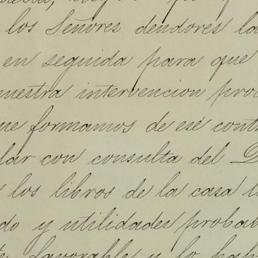 los Señores deudores la
en seguida para que
nuestra intervencion pro
ue formamos de ese cont
lar con consulta del D
los libros de la casa
do y utilidades probab
favorables y lo